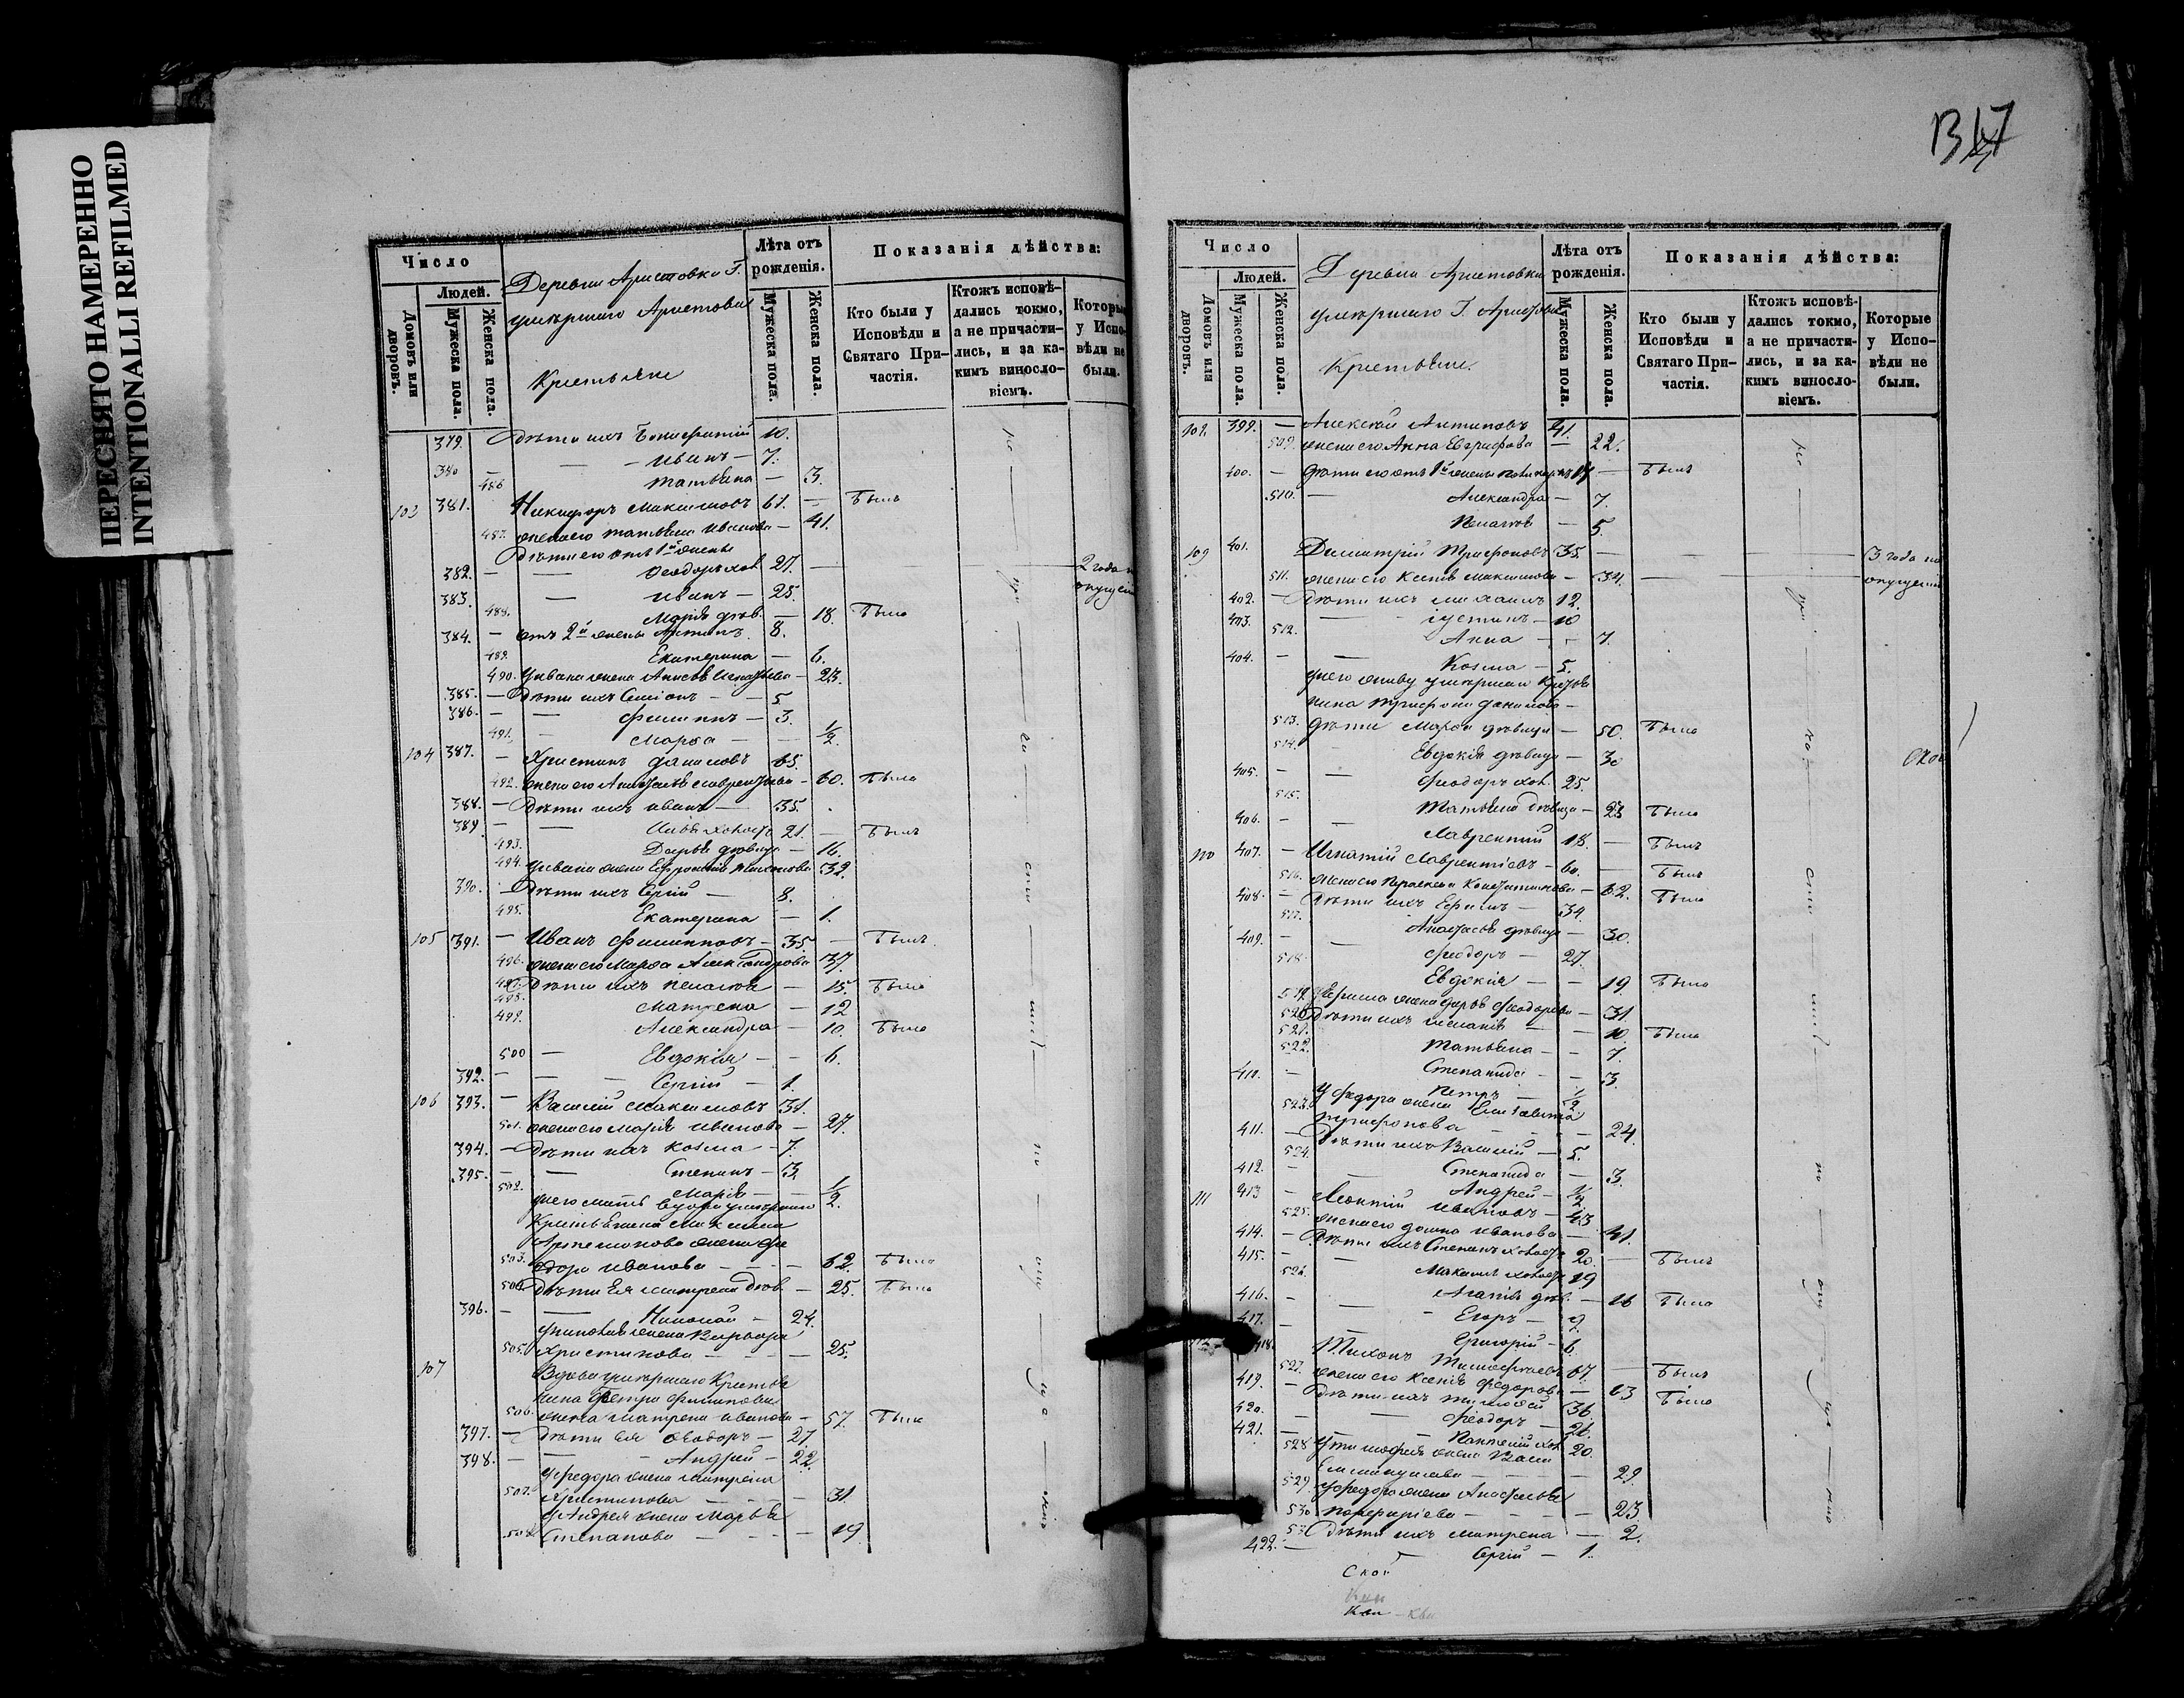 ПЕРЕСНЯТО НАМЕРЕННО
INTENTIONALLI REFILMED
Число
Людей.
Домовъ или дворовъ.
Мужеска пола.
Женска пола.
Деревни Аристовки Г.
умершаго Аристова
Крестьяне
Лѣта отъ рожденія.
Мужеска пола.
Женска пола.
Показанія дѣйства:
Кто были у Исповѣди и Святаго Причастія.
Ктожъ исповѣдались токмо, а не причастились, и за какимъ винословіемъ.
Которые у Исповѣди не были.
379. Дѣти ихъ Бонифатій 10.
380 — Иванъ — 7.
486 Татьяна — 3.
103 381. Никифоръ Максимовъ 61. — Былъ
487. жена его Татьяна Иванова — 41.
Дѣти его отъ 1й жены
382. — Ѳеодоръ хол. 27. — 2 года по
383. — Иванъ — 25. опущен
488. Марія дѣв. — 18. Была
384. — отъ 2й жены Антипъ. 8.
489. Екатерина — 6.
490. У Ивана жена Анисья Игнатьева — 23.
385. — Дѣти ихъ Симіонъ — 5
386. — Филиппъ — 3.
491. Марѳа — ½.
104 387. — Христинъ Даниловъ 65.
492. жена его Анастасія Лаврентьева — 60. Была
388. — Дѣти ихъ Иванъ — 35.
389. — Илья холостъ 21. — Былъ
493. Дарья дѣвица — 16.
494. У Ивана жена Евфросинія Тихонова 32.
390. — Дѣти ихъ Сергій — 8.
495. Екатерина — 1.
105 391. — Иванъ Филипповъ — 35 — Былъ.
496. жена его Марѳа Александрова 37.
497. Дѣти ихъ Пелагея — 15. Была
498. Матрена — 12
499. Александра — 10 Была
500 — Евдокія — 6.
392. — Сергій — 1.
106 393. — Василій Максимовъ 31.
501. жена его Марія Иванова — 27.
394. — Дѣти ихъ Козма — 7.
395. — Степанъ — 3.
502. Марія — ½.
у него мать вдова умершаго
Крестьянина Максима
Артемонова жена Ѳе
503. одора Иванова — 62. Была
504. Дѣти Ея Матрена дѣв. — 25. Была
396. — Николай — 24.
у Николая жена Варвара
505. Христинова — 25.
107 Вдова умершаго Крестья
нина Петра Филиппова
506. жена Матрена Иванова — 57. Была
397. — Дѣти Ея Ѳеодоръ — 27
398. — Андрей — 22.
У Ѳедора жена Матрена
507. Христинова — 31.
У Андрея жена Марья
508. Степанова — 19.
Число
Людей.
Домовъ или дворовъ.
Мужеска пола.
Женска пола.
Деревни Аристовки
умершаго Г. Аристова
Крестьяне.
Лѣта отъ рожденія.
Мужеска пола.
Женска пола.
Показанія дѣйства:
Кто были у Исповѣди и Святаго Причастія.
Ктожъ исповѣдались токмо, а не причастились, и за какимъ винословіемъ.
Которые у Исповѣди не были.
399. — Алексѣй Антиповъ 41.
509. жена его Анна Евграфова — 22.
400. — Дѣти его отъ 1й жены — Былъ
510. — Александра — 7.
Пелагея — 5.
109 401. Димитрій Трифоновъ 35. — 3 года по
511. жена его Ксенія Максимова — 34. — опущенію
402. — Дѣти ихъ Михаилъ 12.
403. — Іустинъ — 10
512. Анна — 7.
404. — Козма — 5.
у него живу умершаго Крестья
нина Трифона Данилова —
513. дѣти Марѳа дѣвица — 50. Была
514. Евдокія дѣвица — 30
405. — Ѳеодоръ хол. 25.
515. Татьяна дѣвица — 23 Была
406. — Лаврентій 18. — Былъ
110 407. — Игнатій Лаврентіевъ — 60. — Былъ
516. жена его Параскева Константинова — 62. Была
408. — Дѣти ихъ Ефимъ — 34.
517. Анастасія дѣвица — 30.
409. — Ѳеодоръ — 27.
518. Евдокія — 19. Была
519. У Ефима жена Дарья Ѳеодорова — 31
520. Дѣти ихъ Меланія — 10. Была
521. Татьяна — 7.
522. Степанида — 3.
410. — Петръ — ½
У Ѳедора жена Елисавета
523. Трифонова — 24
411. — Дѣти ихъ Василій — 5.
524. Степанида — 3.
412. — Андрей — ½
111 413 — Леонтій Ивановъ — 43.
525. жена его Домна Иванова — 41.
414. — Дѣти ихъ Степанъ холостъ 20. — Былъ
415. — Максимъ холостъ 19
526. Агапія дѣв. — 16 Была
416. — Егоръ — 9.
417. — Григорій — 6.
418. Тихонъ Тимофеевъ 67. — Былъ
527. жена его Ксенія Ѳедорова — 63 Была
419. — Дѣти ихъ Тимоѳей 36.
420. — Ѳеодоръ — 26.
421. — Пантелій хол. 20.
528 У Тимофея жена Васи
Емельянова — 29.
529. У Ѳедора жена Анастасія
530 Порфиріева — 23.
Дѣти ихъ Матрена — 2.
422. — Сергій — 1.